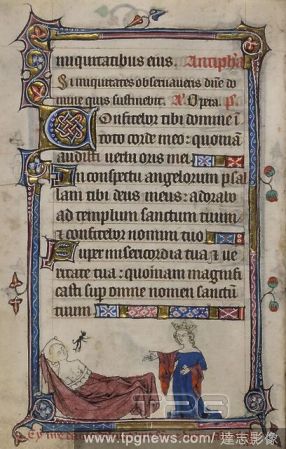 iniquitatibus eius. Antiph'a
Si iniquitates observaveris d̄ne do
mine quis sustinebit. A. Opera. p̄s.
Confitebor tibi domine ī
toto corde meo: quoniā
audisti verba oris mei.
In conspectu angelorum psal
lam tibi deus meus: adorabo
ad templum sanctum tuum
et confitebor nomini tuo
Super misericordia tua et ve
ritate tua: quoniam magnifi
casti sup omne nomen sanctū
tuum
TPG
www.tpgnews.com / 達志影像